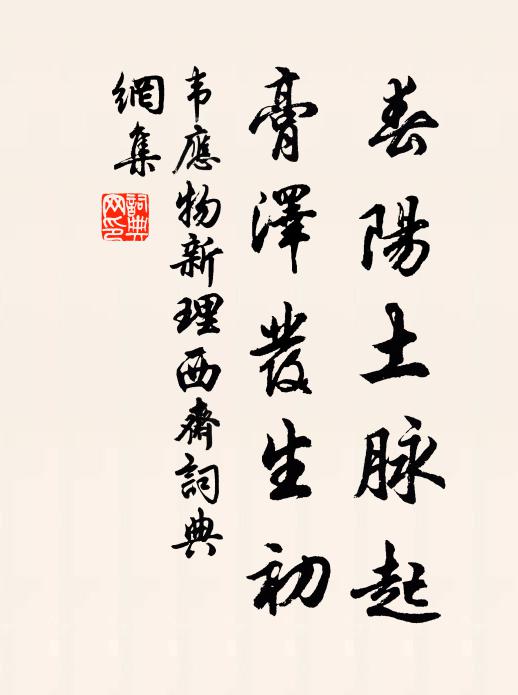 春陽土脉起
膏澤發生初
韦應物新理西齋詞典
網集
詞典
网印